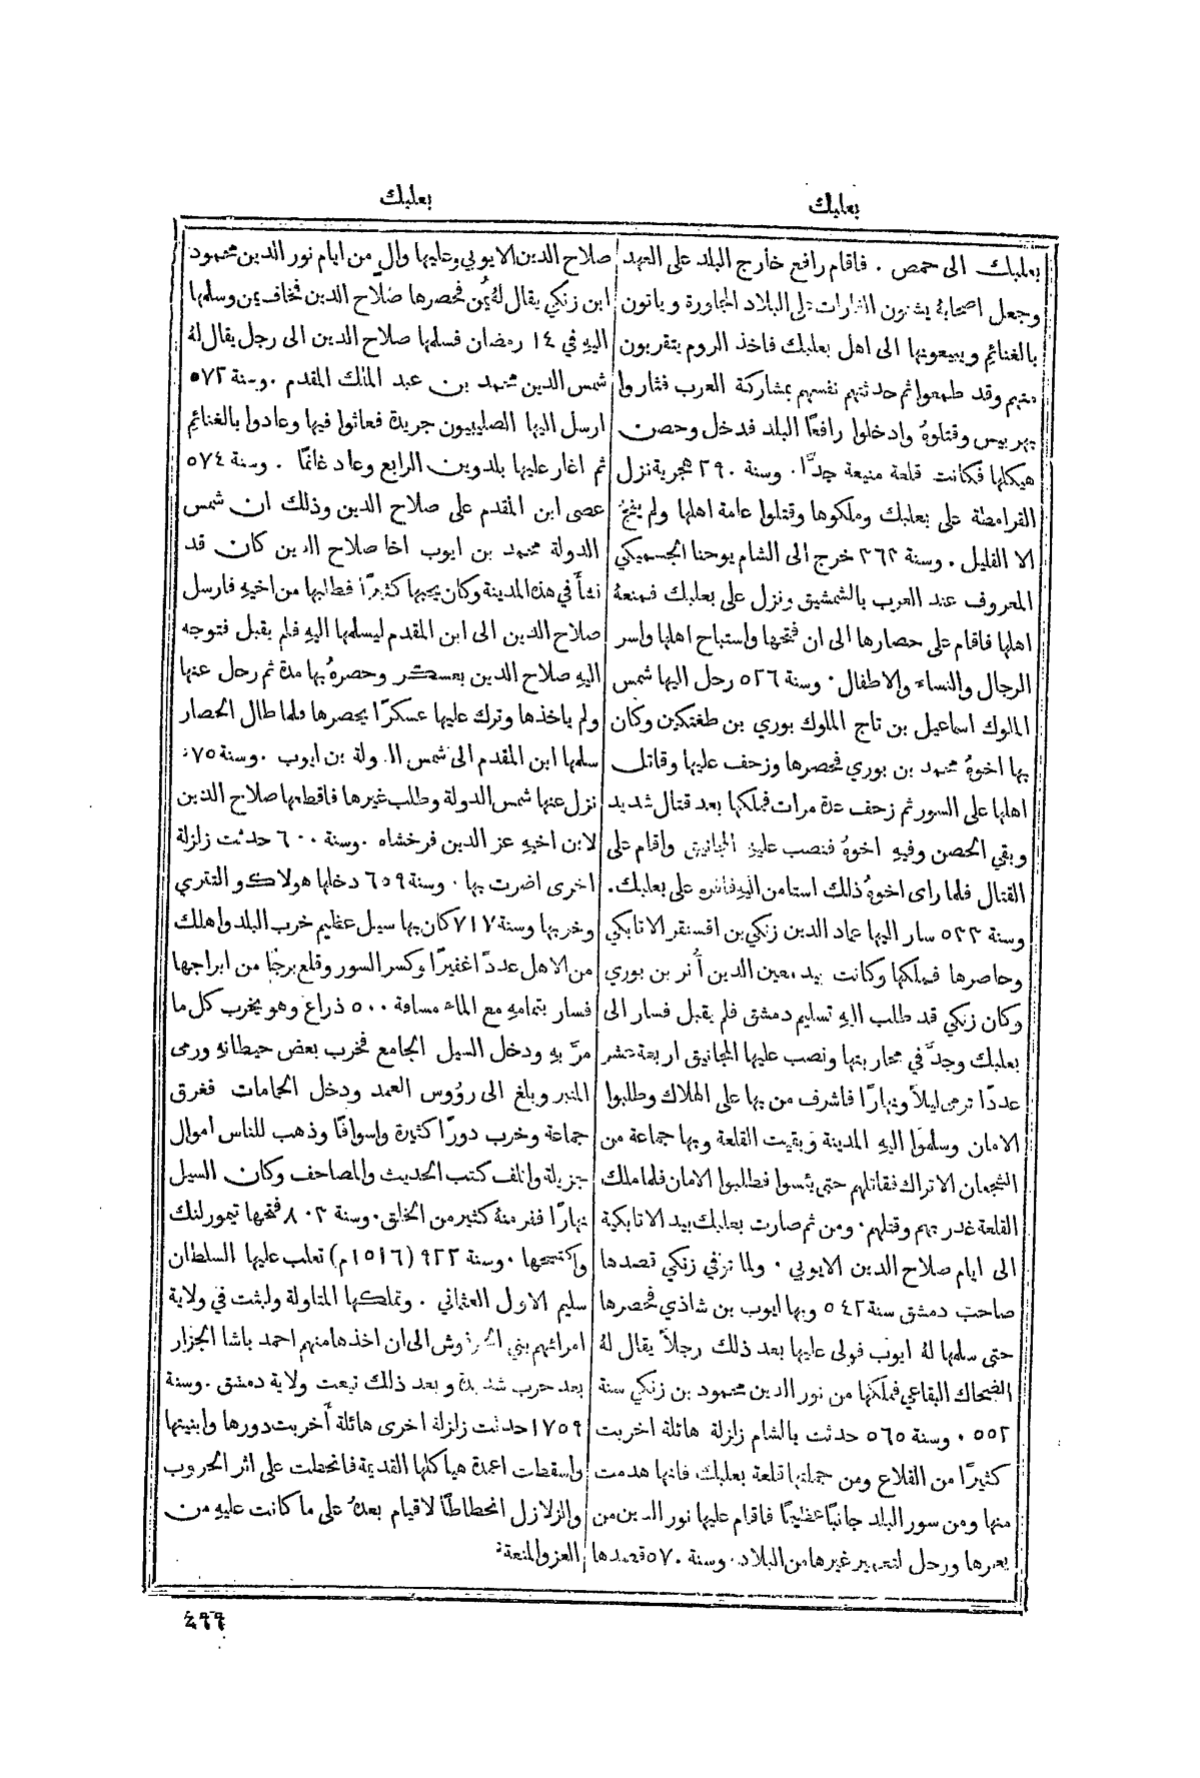 بعلبك
بعلبك
بعلبك الى حمص . فاقام رافع خارج البلد على العهد
وجعل اصحابهُ يشنون الغارات على البلاد المجاورة وياتون
بالغنائمِ ويبيعونها الى اهل بعلبك فاخذ الروم يتقربون
منهم وقد طمعوا ثم حدثتهم نفسهم بمشاركة العرب فثاروا
بهربيس وقتلوهُ وادخلوا رافعًا البلد فدخل وحصن
هيكلها فكانت قلعة منيعة جدًّا . وسنة ٢٩٠ هجرية نزل
القرامطة على بعلبك وملكوها وقتلوا عامة اهلها ولم ينجُ
الا القليل . وسنة ٣٦٣ خرج الى الشام يوحنا الجسميكي
المعروف عند العرب بالشمشيق ونزل على بعلبك فمنعهُ
اهلها فاقام على حصارها الى ان فتحها واستباح اهلها واسر
الرجال والنساء والاطفال . وسنة ٥٢٦ رحل اليها شمس
الملوك اسماعيل بن تاج الملوك بوري بن طغتكين وكان
بها اخوهُ محمد بن بوري فحصرها وزحف عليها وقاتل
اهلها على السور ثم زحف عدة مرات فملكها بعد قتال شديد
وبقي الحصن وفيهِ اخوهُ فنصب عليهِ المجانيق واقام على
القتال فلما راى اخوهُ ذلك استامن اليهِ فاقره على بعلبك .
وسنة ٥٣٣ سار اليها عماد الدين زنكي بن اقسنقر الاتابكي
وحاصرها فملكها وكانت بيد معين الدين أُنر بن بوري
وكان زنكي قد طلب اليهِ تسليم دمشق فلم يقبل فسار الى
بعلبك وجدَّ في محاربتها ونصب عليها المجانيق اربعة عشر
عددًا ترمى ليلاً ونهارًا فاشرف من بها على الهلاك وطلبوا
الامان وسلموا اليهِ المدينة وبقيت القلعة وبها جماعة من
الشجعان الاتراك فقاتلهم حتى يئسوا فطلبوا الامان فلما ملك
القلعة غدر بهم وقتلهم . ومن ثم صارت بعلبك بيد الاتابكية
الى ايام صلاح الدين الايوبي . ولما توفي زنكي قصدها
صاحب دمشق سنة ٥٤٢ وبها ايوب بن شاذي فحصرها
حتى سلمها لهُ ايوب فولى عليها بعد ذلك رجلاً يقال لهُ
الضحاك البقاعي فملكها من نور الدين محمود بن زنكي سنة
٥٥٢ . وسنة ٥٦٥ حدثت بالشام زلزلة هائلة اخربت
كثيرًا من القلاع ومن جملتها قلعة بعلبك فانها هدمت
منها ومن سور البلد جانبًا عظيمًا فاقام عليها نور الدين من
يعمرها ورحل لتعمير غيرها من البلاد . وسنة ٥٧٠ قصدها
صلاح الدين الايوبي وعليها والٍ من ايام نور الدين محمود
ابن زنكي يقال لهُ يُمن فحصرها صلاح الدين فخاف يمن وسلمها
اليهِ في ١٤ رمضان فسلمها صلاح الدين الى رجل يقال لهُ
شمس الدين محمد بن عبد الملك المقدم . وسنة ٥٧٢
ارسل اليها الصليبيون جريدة فعاثوا فيها وعادوا بالغنائمِ
ثم اغار عليها بلدوين الرابع وعاد غانمًا . وسنة ٥٧٤
عصى ابن المقدم على صلاح الدين وذلك ان شمس
الدولة محمد بن ايوب اخا صلاح الدين كان قد
نشأَ في هذه المدينة وكان يحبها كثيرًا فطلبها من اخيهِ فارسل
صلاح الدين الى ابن المقدم ليسلمها اليهِ فلم يقبل فتوجه
اليهِ صلاح الدين بعسكر وحصرهُ بها مدة ثم رحل عنها
ولم ياخذها وترك عليها عسكرًا يحصرها فلما طال الحصار
سلمها ابن المقدم الى شمس الدولة بن ايوب . وسنة ٥٧٥
نزل عنها شمس الدولة وطلب غيرها فاقطعها صلاح الدين
لابن اخيهِ عز الدين فرخشاه . وسنة ٦٠٠ حدثت زلزلة
اخرى اضرت بها . وسنة ٦٥٩ دخلها هولاكو التتري
وخربها وسنة ٧١٧ كان بها سيل عظيم خرب البلد واهلك
من الاهل عددًا غفيرًا وكسر السور وقلع برجًا من ابراجها
فسار بتمامهِ مع الماء مسافة ٥٠٠ ذراع وهو يخرب كل ما
مرَّ بهِ ودخل السيل الجامع فخرب بعض حيطانهِ ورمى
المنبر وبلغ الى رؤوس العمد ودخل الحمامات فغرق
جماعة وخرب دورًا كثيرة واسواقًا وذهب للناس اموال
جزيلة واتلف كتب الحديث والمصاحف وكان السيل
نهارًا ففر منهُ كثير من الخلق . وسنة ٨٠٣ فتحها تيمورلنك
واكتسحها . وسنة ٩٢٢ (١٥١٦م) تغلب عليها السلطان
سليم الاول العثماني . وتملكها المتاولة ولبثت في ولاية
امرائهم بني الحرفوش الى ان اخذها منهم احمد باشا الجزار
بعد حرب شديدة وبعد ذلك تبعت ولاية دمشق . وسنة
١٧٥٩ حدثت زلزلة اخرى هائلة أَخربت دورها وابنيتها
واسقطت اعمدة هياكلها القديمة فانحطت على اثر الحروب
والزلازل انحطاطًا لا قيام بعدهُ على ما كانت عليهِ من
العز والمنعة
٤٩٩